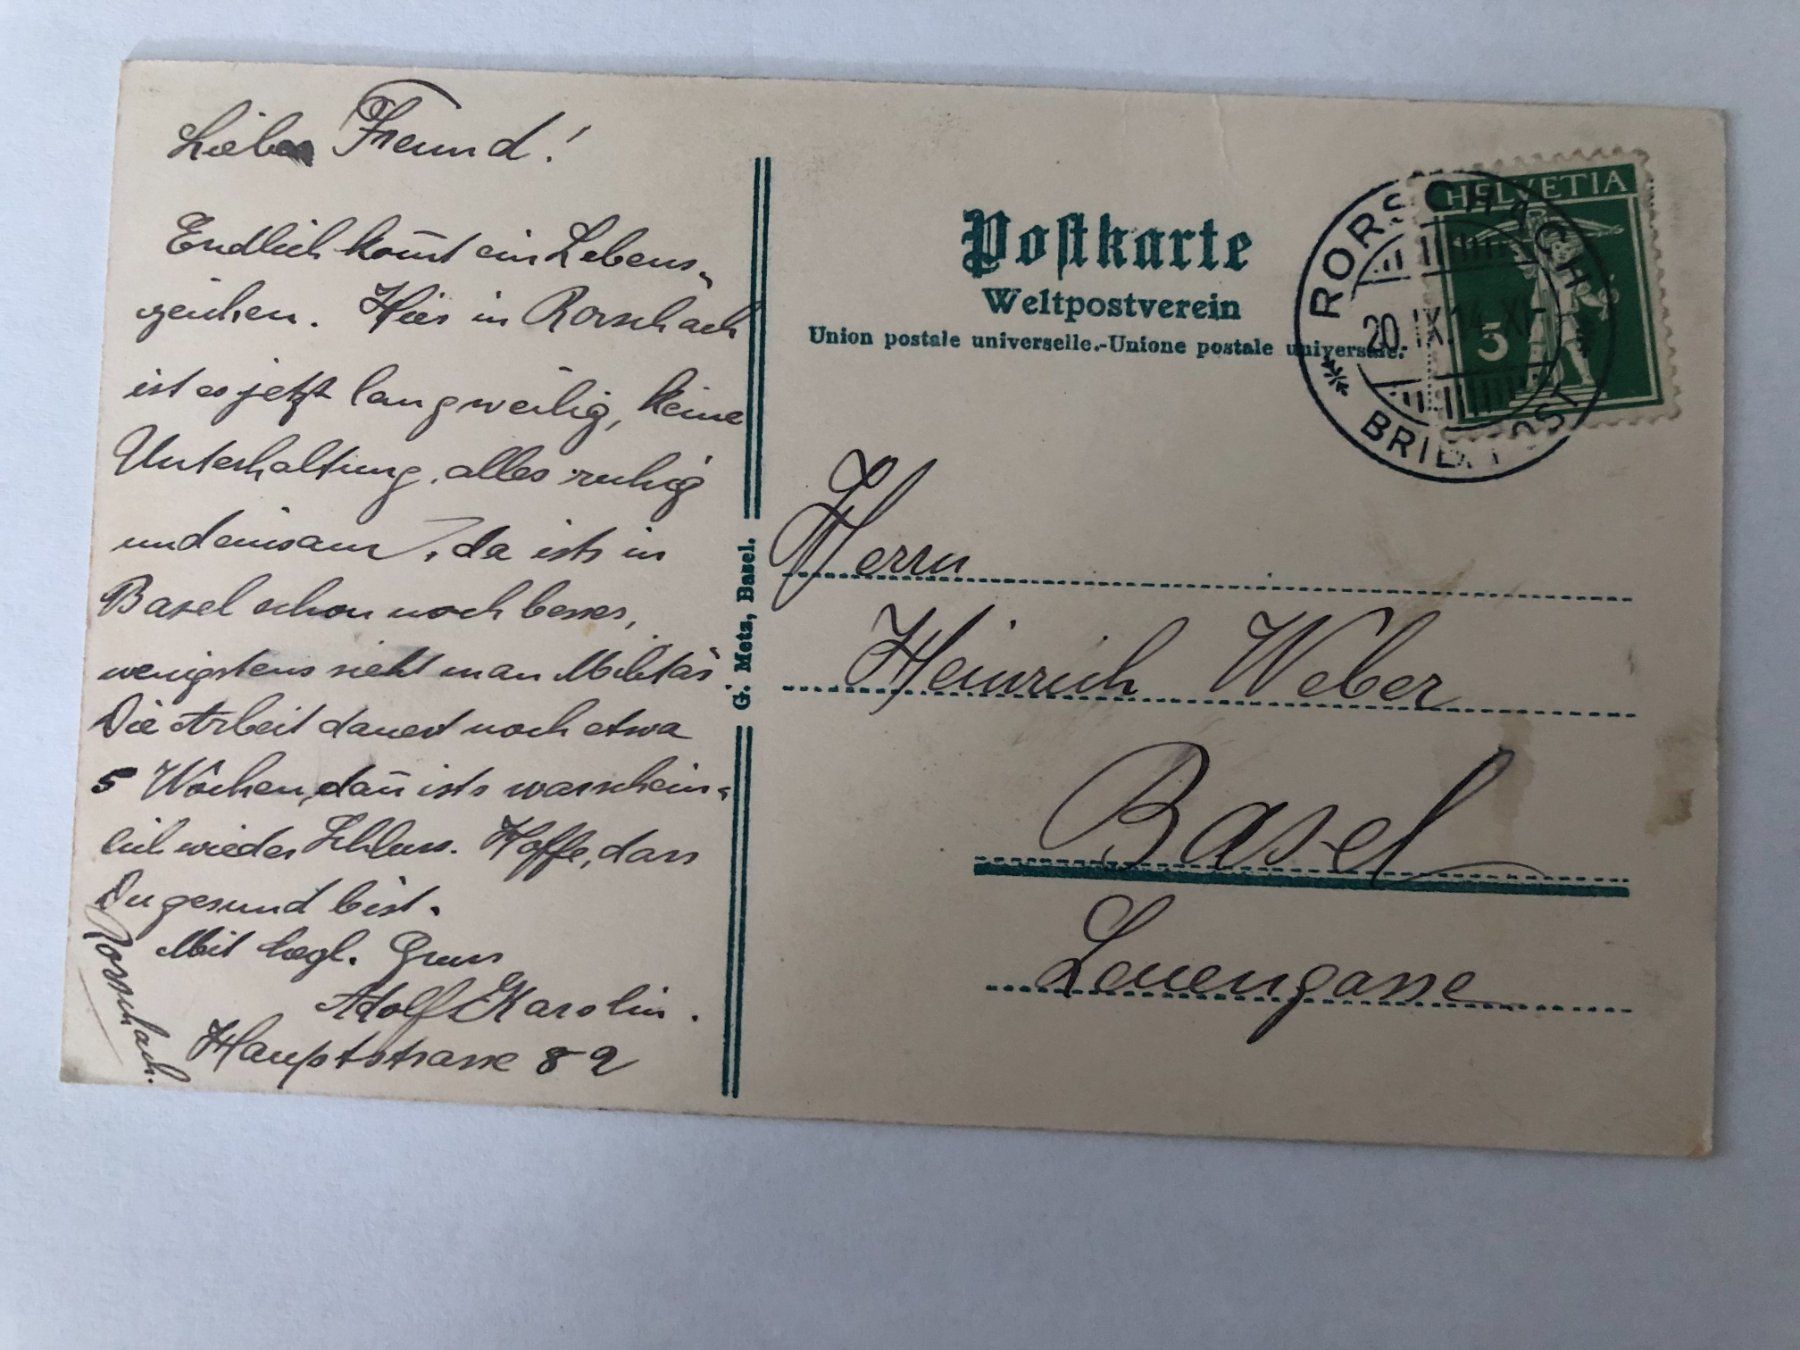 Lieber Freund!
Endlich kom̅t ein Lebens-
zeichen. Hier in Rorschach
ist es jetzt langweilig, keine
Unterhaltung, alles ruhig
und einsam, da ists in
Basel schon noch besser,
wenigstens sieht man Militär
Die Arbeit dauert noch etwa
5 Wochen, dan̅ ists warschein-
lich wieder Schluss. Hoffe, dass
Du gesund bist.
Mit Gruss
Adolf Karolin.
Hauptstrasse 82
Rorschach.
G. Metz, Basel.
Postkarte
Weltpostverein
Union postale universelle.-Unione postale universale.
HELVETIA
5
RORSCHACH
20.IX.14.XI
BRIEFPOST
Herrn
Heinrich Weber
Basel
Leuengasse